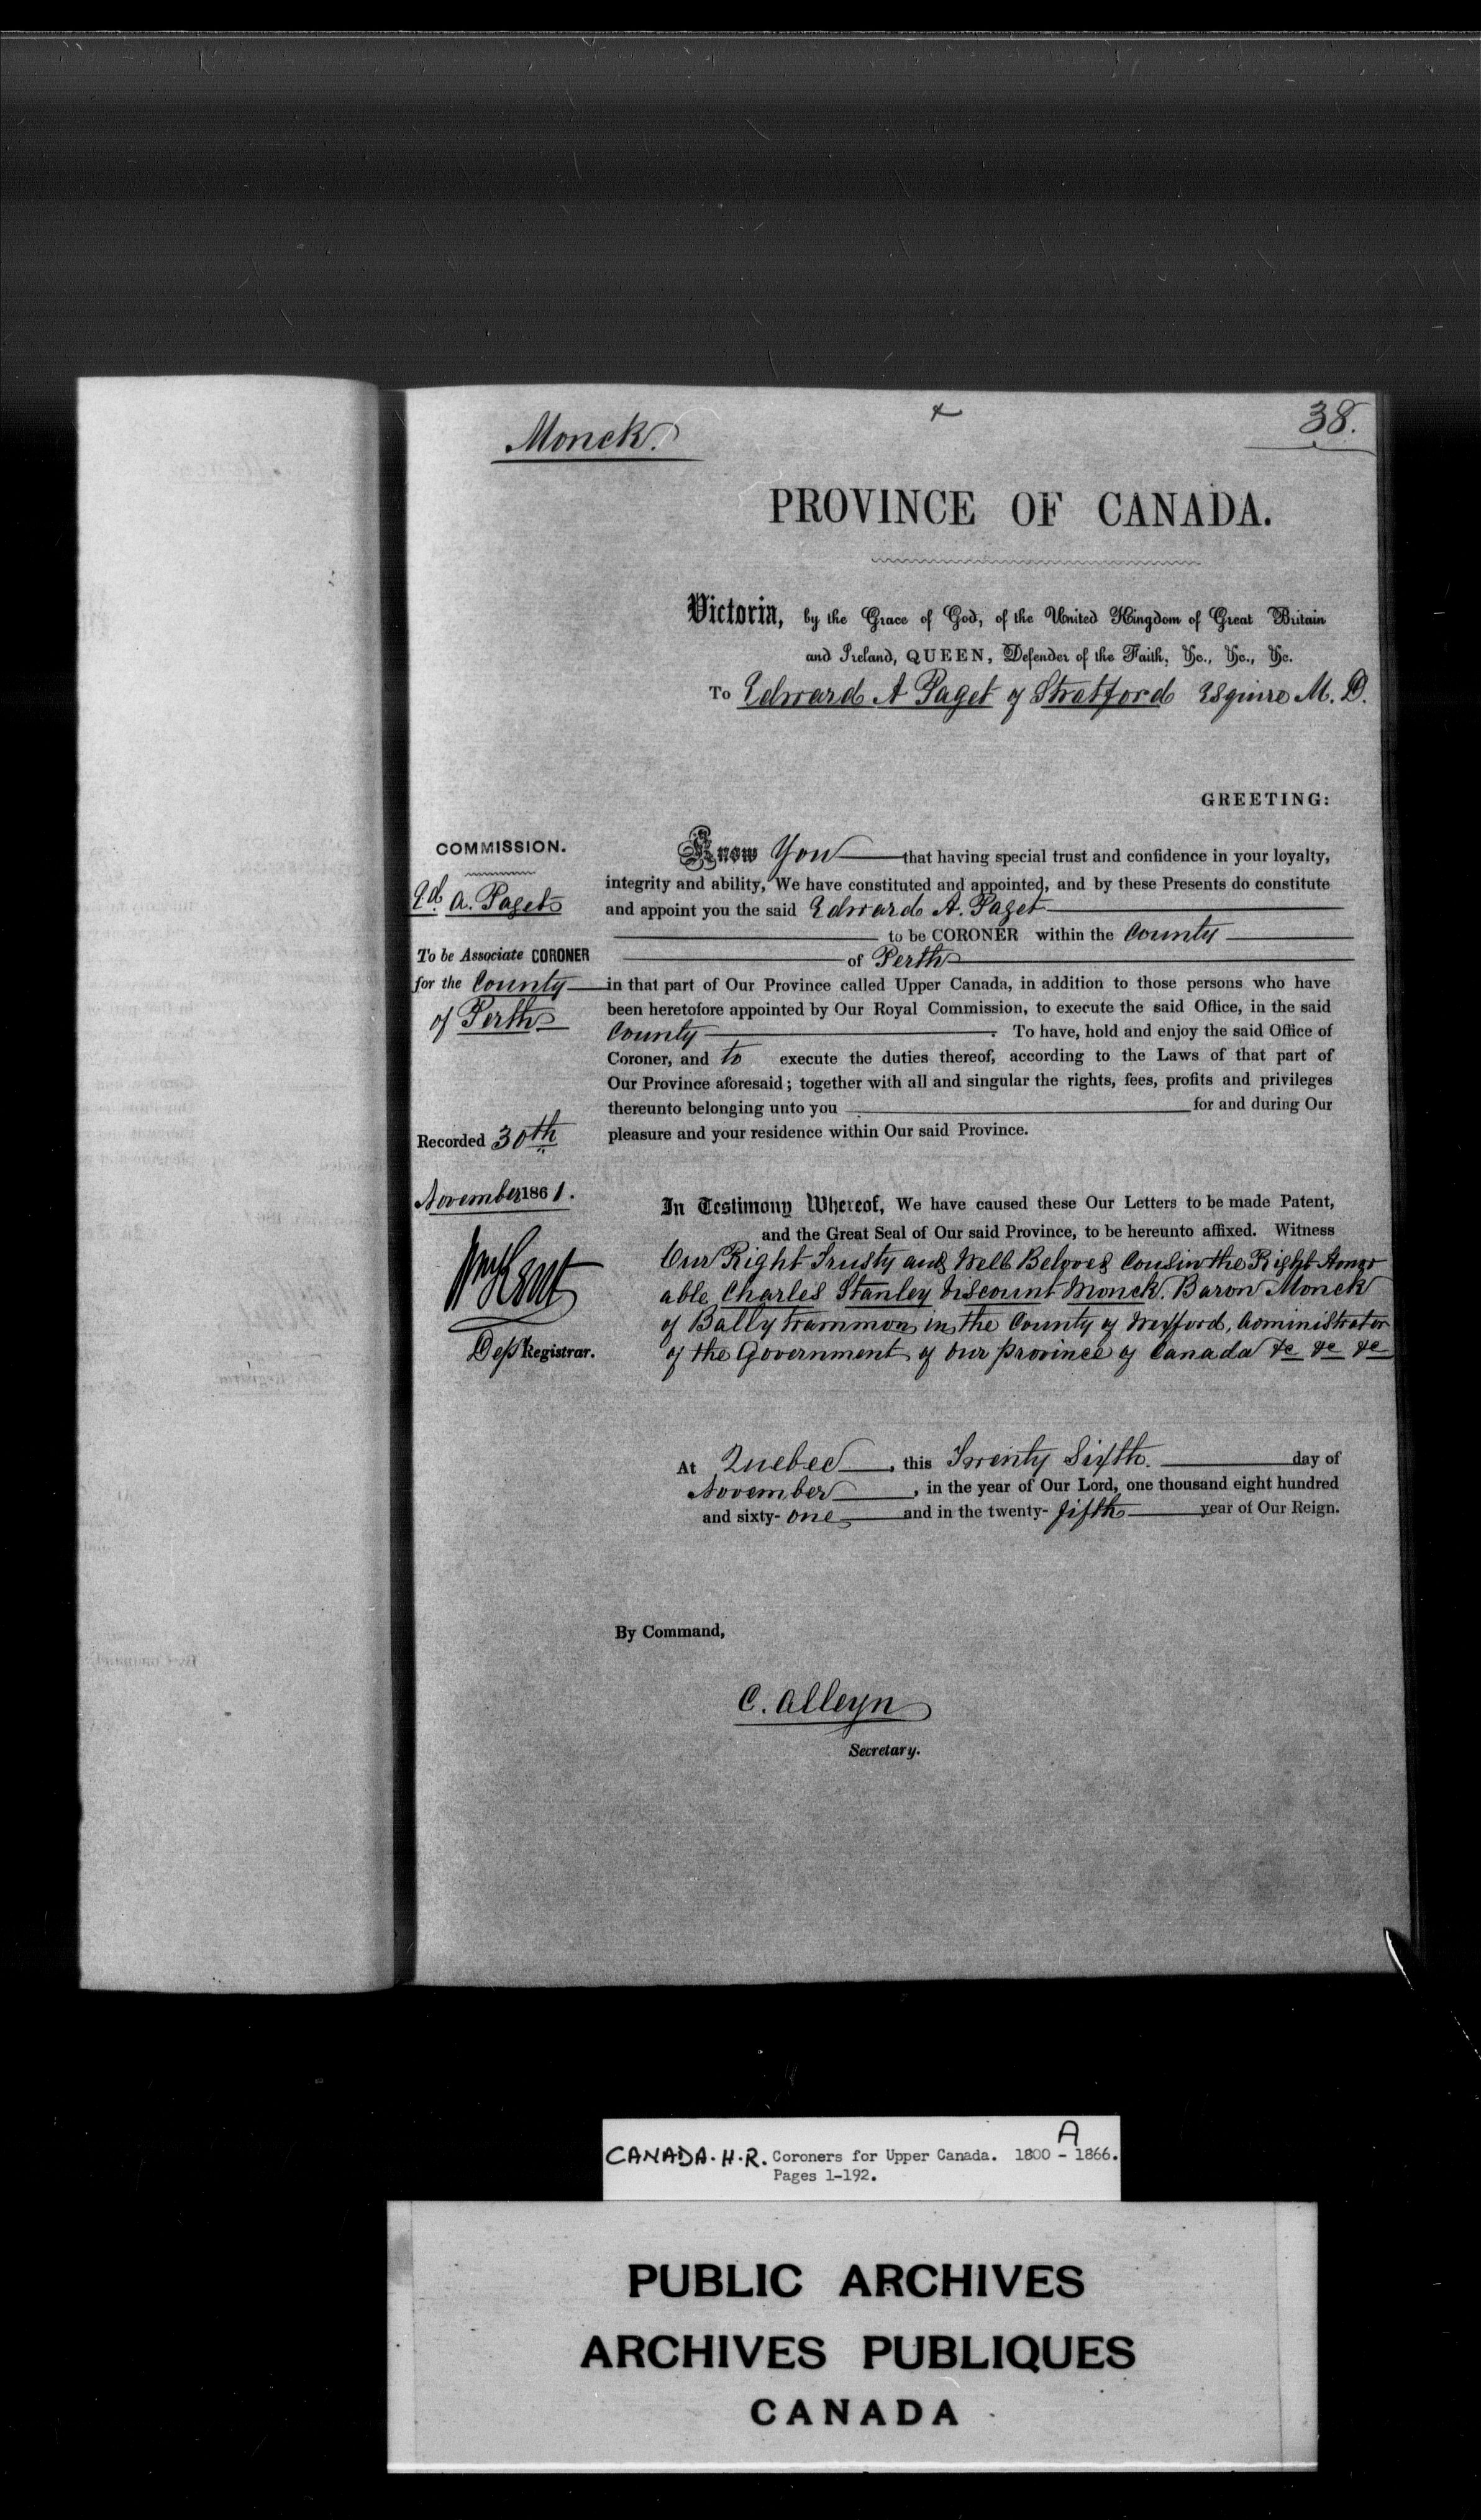 Monck.
38.
PROVINCE OF CANADA.
Victoria, by the Grace of God, of the United Kingdom of Great Britain
and Ireland, QUEEN, Defender of the Faith, &c., &c., &c.
To Edward A Paget of Stratford Esquire M. D.
GREETING:
COMMISSION.
Ed. A. Paget
To be Associate CORONER
for the County
of Perth
Recorded 30th
November 1861.
Dep Registrar.
Know You that having special trust and confidence in your loyalty,
integrity and ability, We have constituted and appointed, and by these Presents do constitute
and appoint you the said Edward A. Paget
to be CORONER within the County
of Perth
in that part of Our Province called Upper Canada, in addition to those persons who have
been heretofore appointed by Our Royal Commission, to execute the said Office, in the said
County. To have, hold and enjoy the said Office of
Coroner, and to execute the duties thereof, according to the Laws of that part of
Our Province aforesaid; together with all and singular the rights, fees, profits and privileges
thereunto belonging unto you for and during Our
pleasure and your residence within Our said Province.
In Testimony Whereof, We have caused these Our Letters to be made Patent,
and the Great Seal of Our said Province, to be hereunto affixed. Witness
Our Right Trusty and Well Beloved Cousin the Right Honor
able Charles Stanley Viscount Monck. Baron Monck
of Ballytrammon in the County of Wexford, Administrator
of the Government of Our Province of Canada &c &c &c
At Quebec, this Twenty Sixth. day of
November, in the year of Our Lord, one thousand eight hundred
and sixty-one and in the twenty-fifth year of Our Reign.
By Command,
C. Alleyn
Secretary.
A
CANADA. H.R. Coroners for Upper Canada. 1800 - 1866.
Pages 1-192.
PUBLIC ARCHIVES
ARCHIVES PUBLIQUES
CANADA